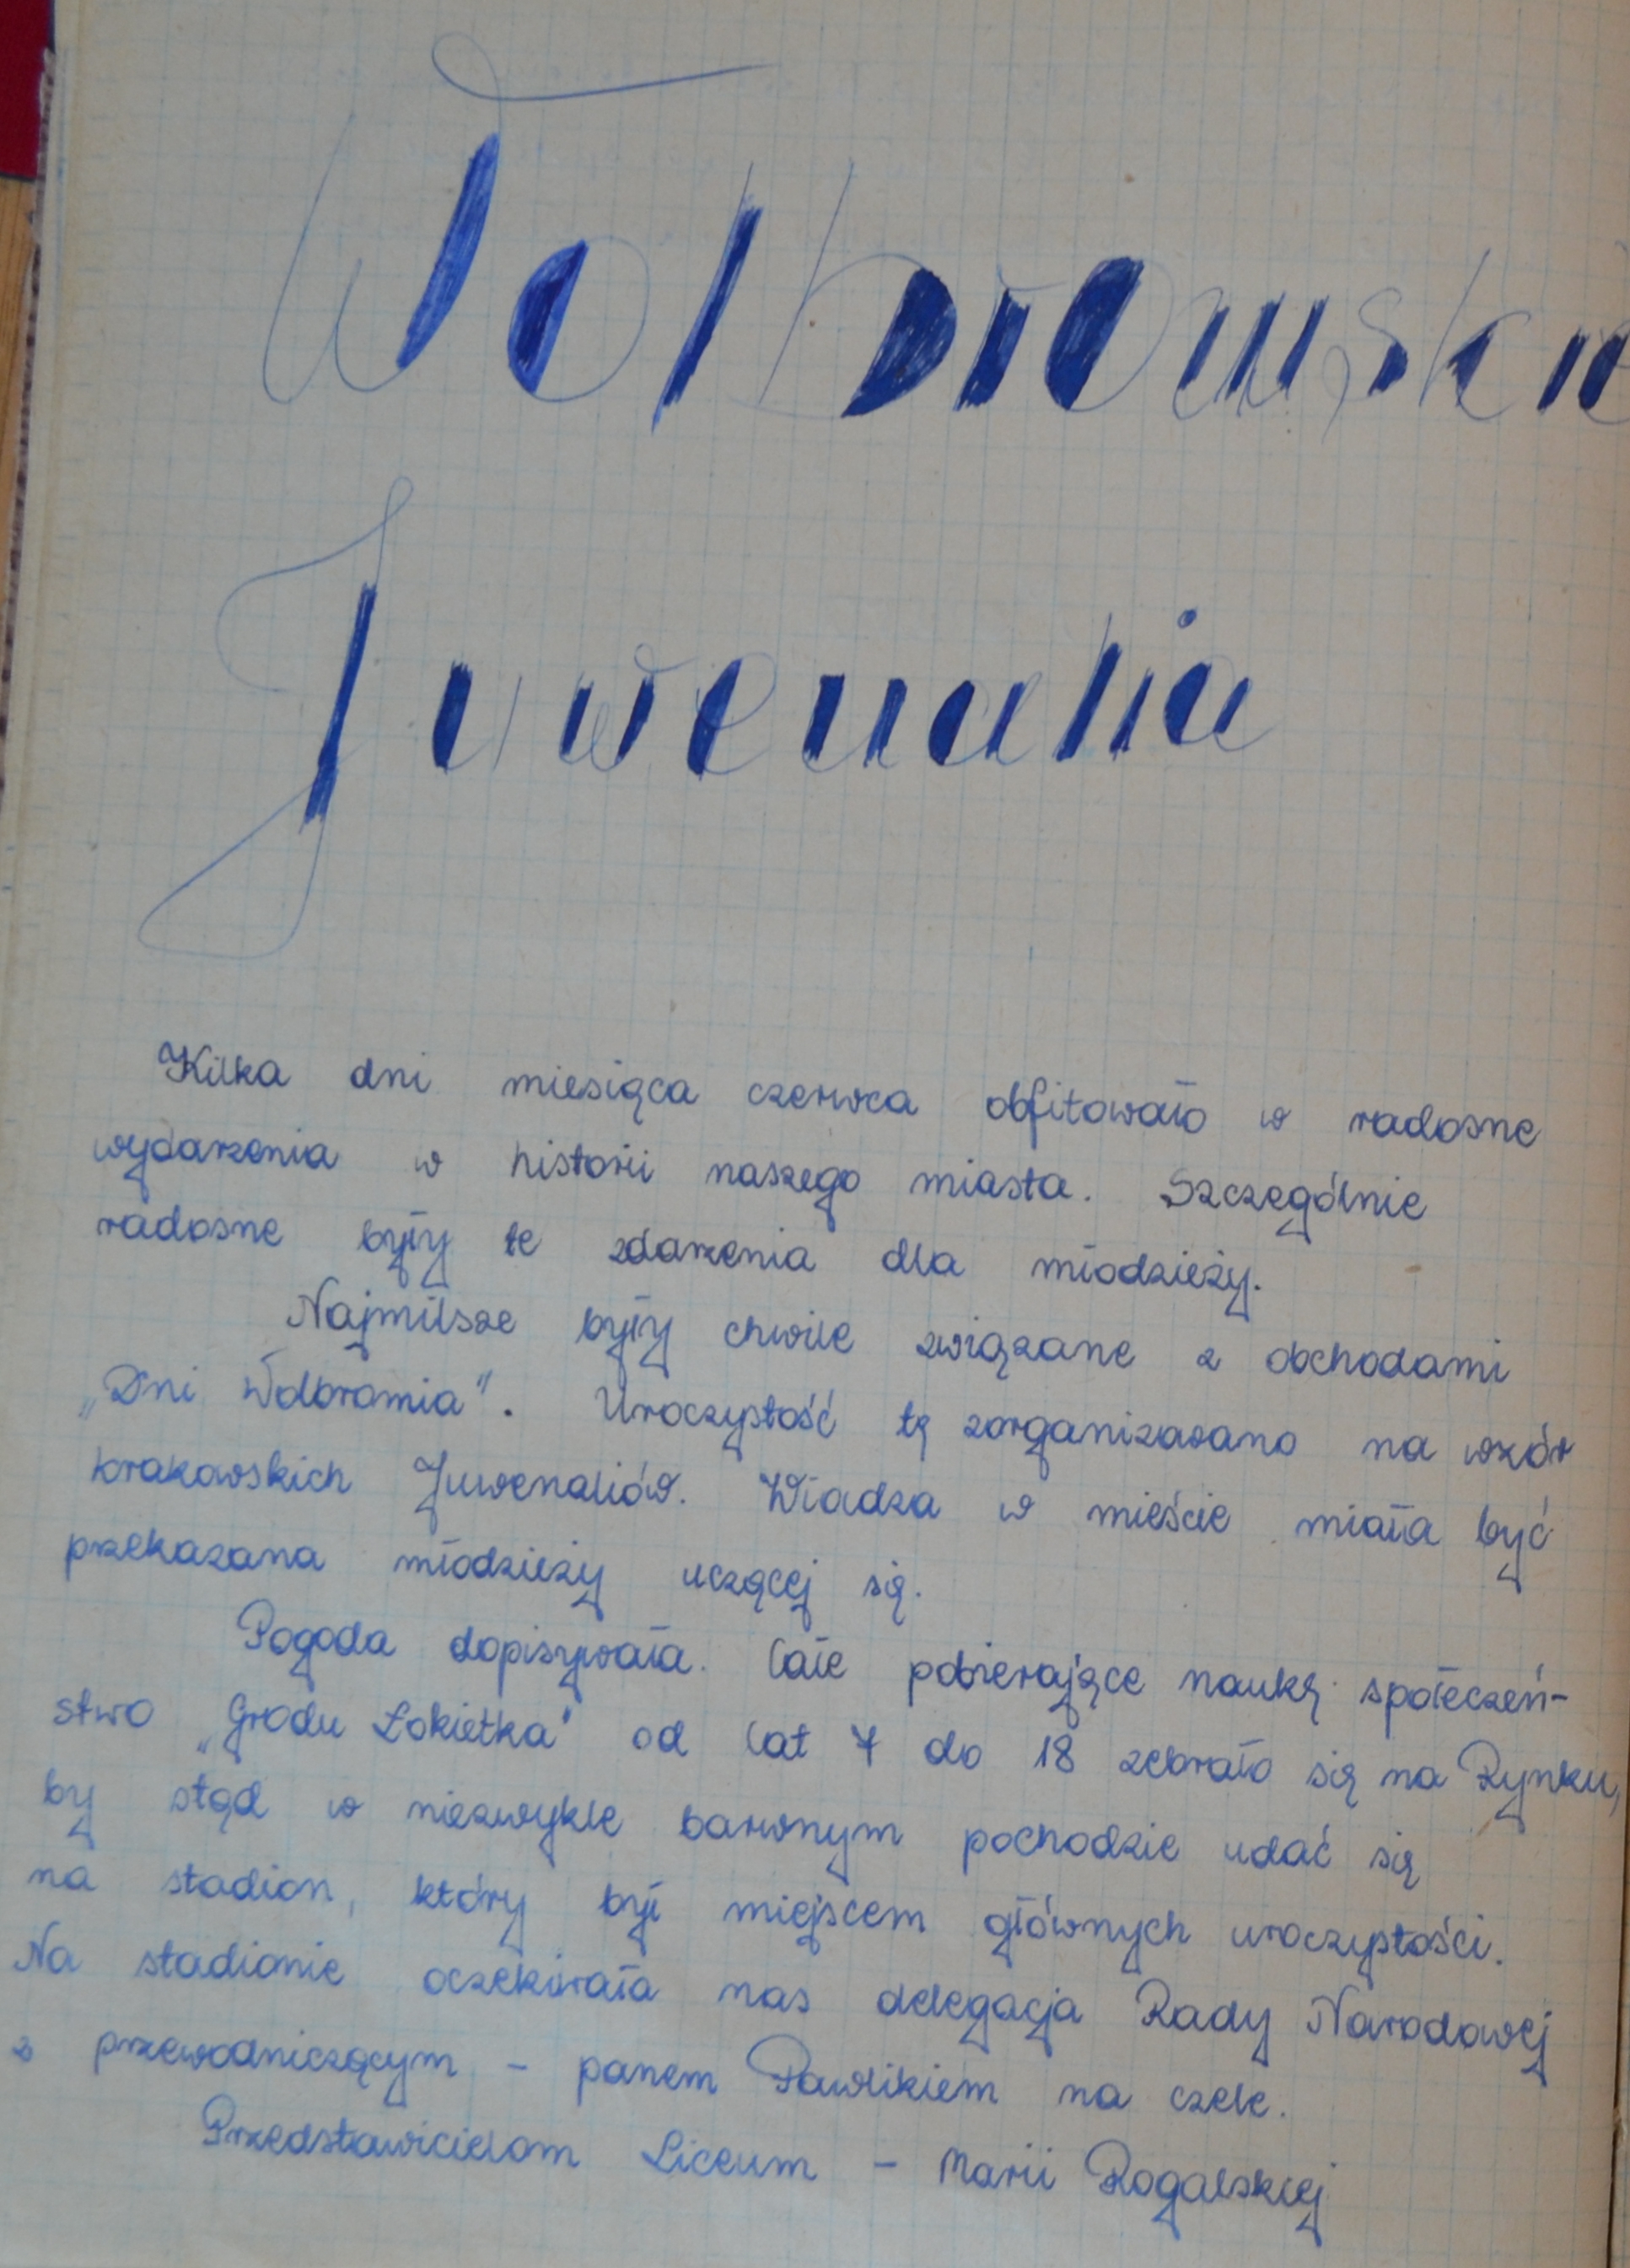 Wolbromskie
Juwenalia
Kilka dni miesiąca czerwca obfitowało w radosne
wydarzenia w historii naszego miasta. Szczególnie
radosne były te zdarzenia dla młodzieży.
Najmilsze były chwile związane z obchodami
„Dni Wolbromia". Uroczystość tę zorganizowano na wzór
krakowskich Juwenaliów. Władza w mieście miała być
przekazana młodzieży uczącej się.
Pogoda dopisywała. Całe pobierające naukę społeczeń-
stwo „Grodu Łokietka" od lat 7 do 18 zebrało się na Rynku,
by stąd w niezwykle barwnym pochodzie udać się
na stadion, który był miejscem głównych uroczystości.
Na stadionie oczekiwała nas delegacja Rady Narodowej
z przewodniczącym - panem Pawlikiem na czele.
Przedstawicielom Liceum - Marii Rogalskiej